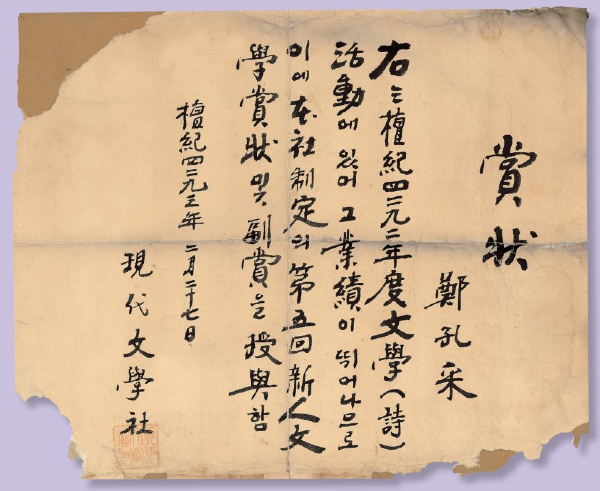 賞狀
鄭孔采
右는 檀紀四二九二年度文學(詩)
活動에 있어 그 業績이 뛰어나므로
이에 本社 制定의 第五回 新人文
學賞狀 및 副賞을 授與함
檀紀四二九三年 二月二十七日
現代文學社